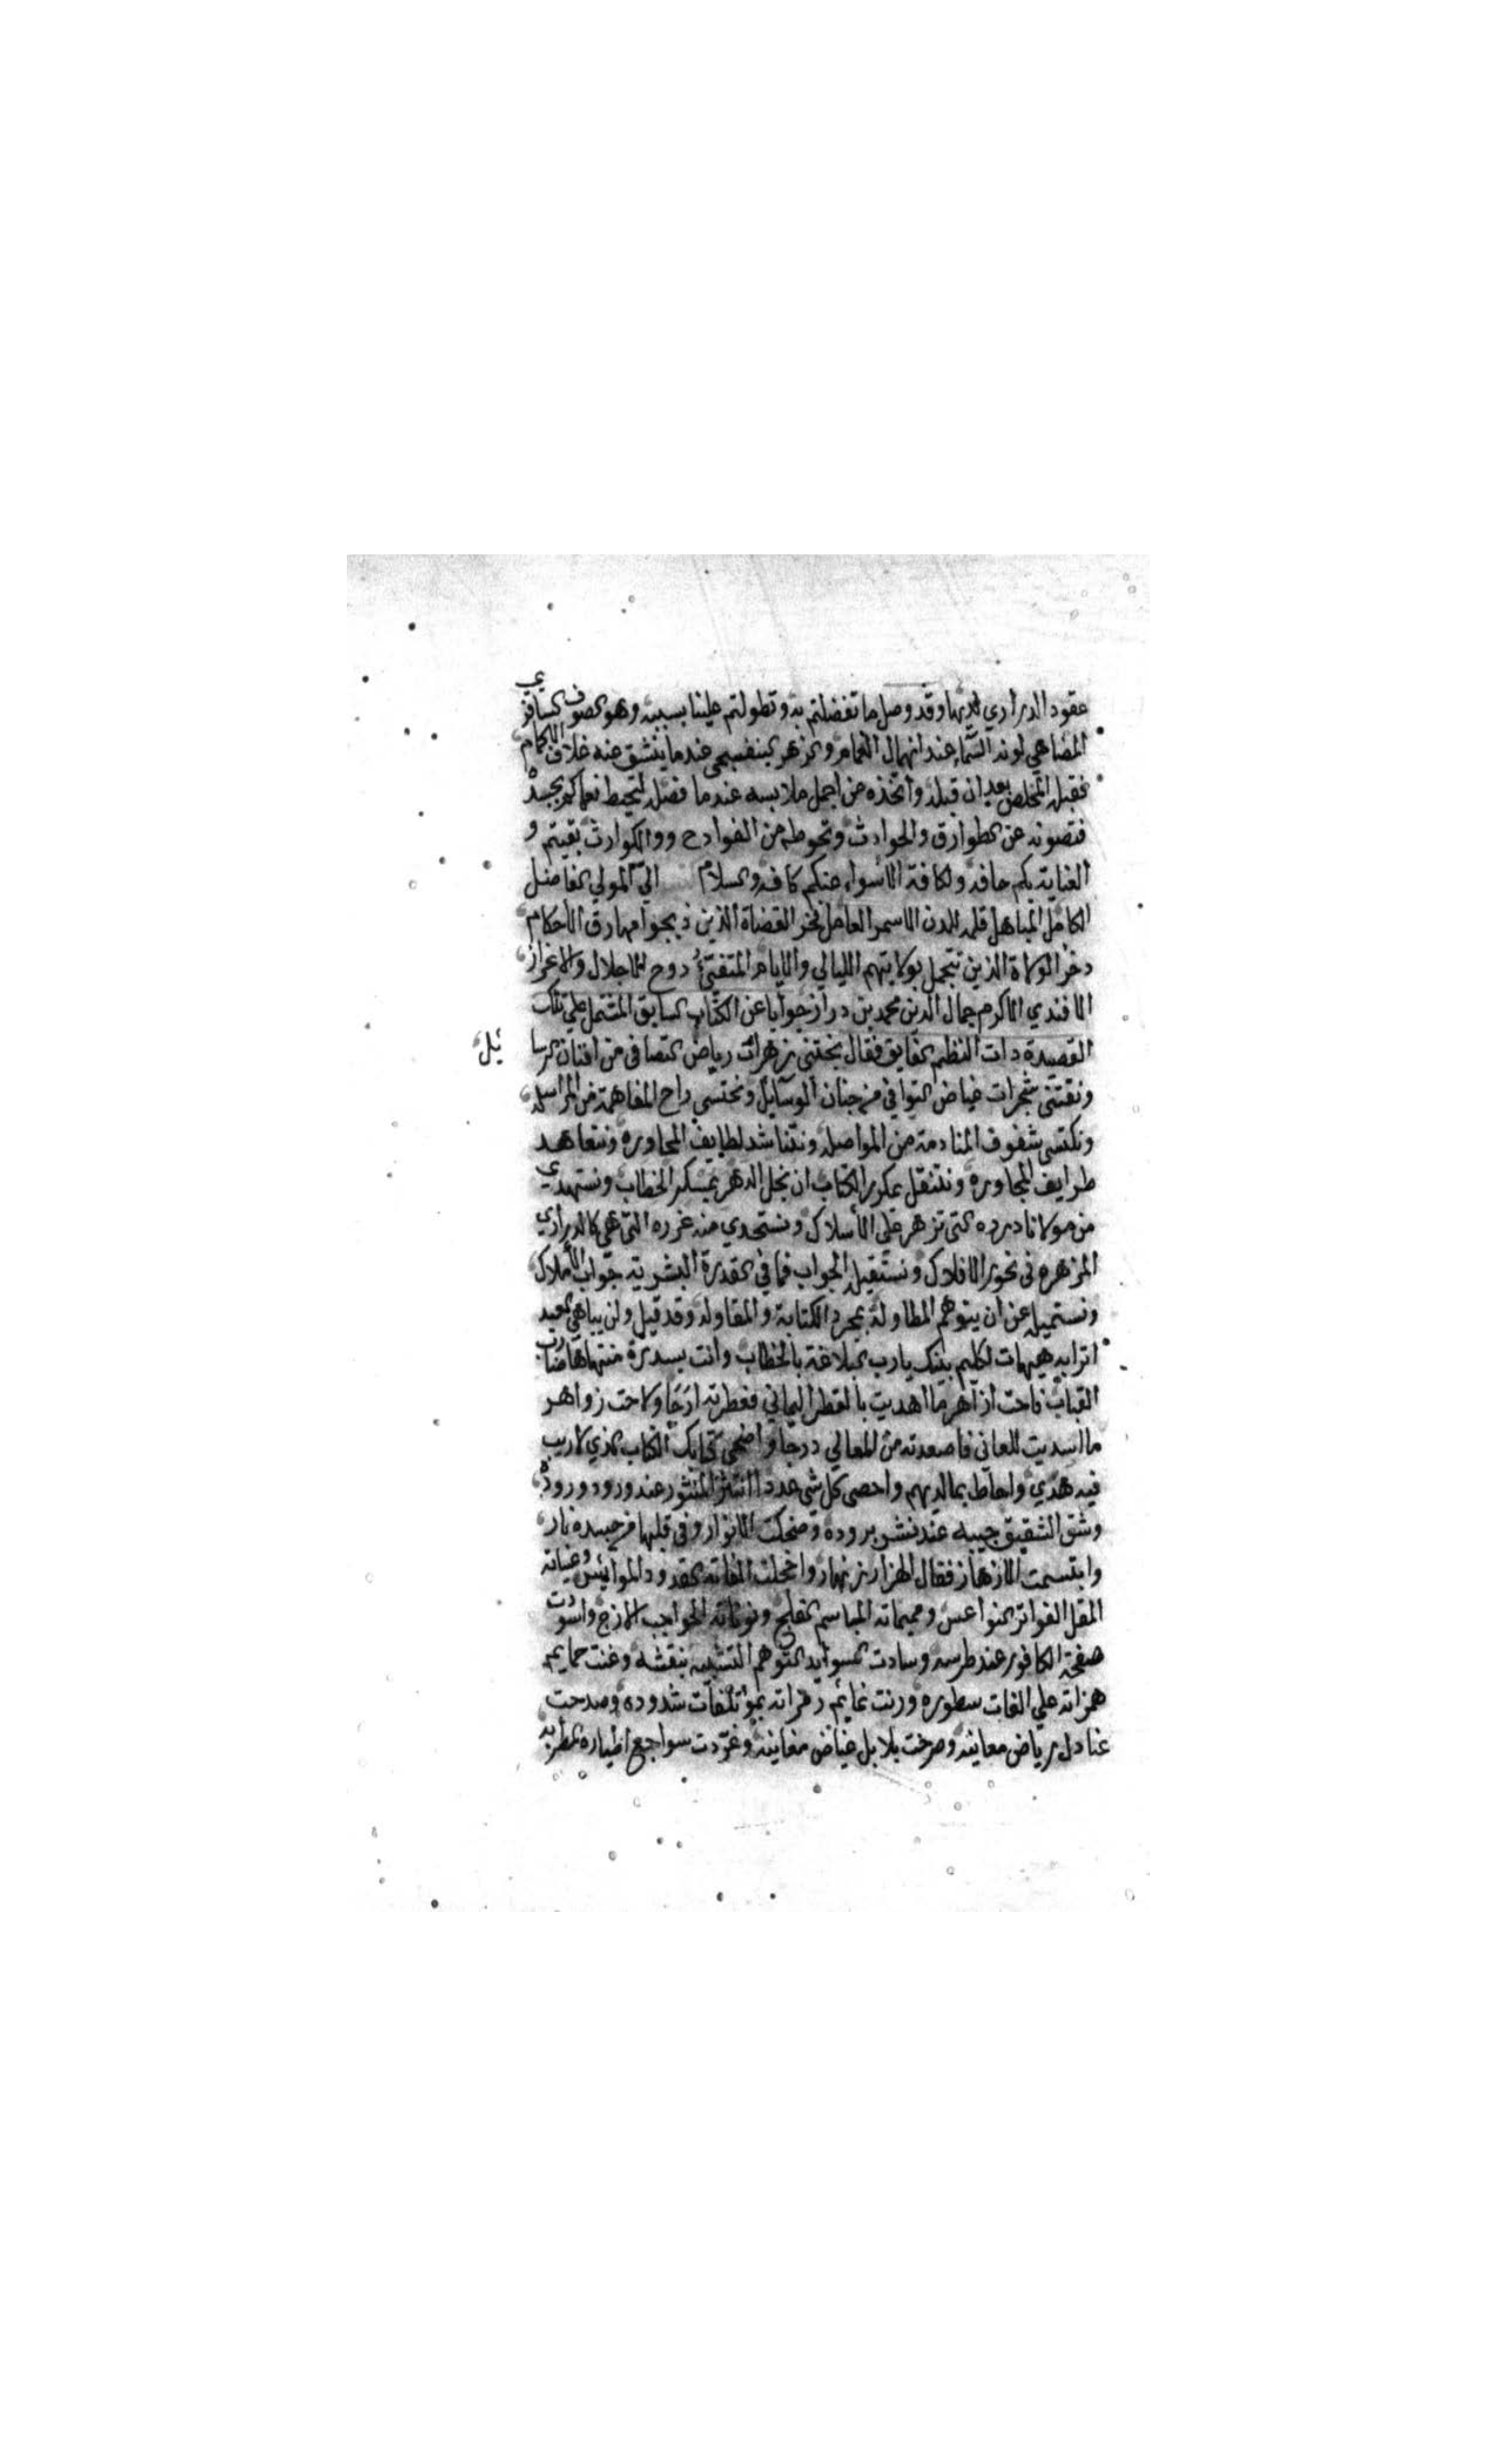 عقود الدراري لديها وقد وصل ما تفضلتم به وتطولتم علينا بسببه وهو الصوف السافزي
المضاهي لونه السماء عند انهمال الغمام والزهر البنفسجي عندما ينشق عنه غلاف الاكمام
فقبله المخلص بعد ان قبله واتخذه من اجمل ملابسه عندما فصله لتحيط نعماكم بجسده
فتصونه عن الطوارق والحوادث وتحوطه من الفوادح والكوارث بقيتم و
العناية بكم حافه ولكافة الاسواء عنكم كافه والسلام الى المولي الفاضل
الكامل المباهل قلمه اللدن الاسمر العامل فخر القضاة الذين ذبجوا مهارق الاحكام
ذخر الولاة الذين تتجمل بولايتهم الليالي والايام المتفيئ دوح الاجلال والاعزاز
الافندي الاكرم جمال الدين محمد بن دراز جوابا عن الكتاب السابق المشتمل علي تلك
القصيدة ذات النظم الفايق فقال نجتني زهرات رياض التصافي من افنان الرسائل
ونقتني شجرات غياض التوافي من جنان الوسآئل ونحتسي راح المفاهمة من المراسله
ونكتسي شفوف المنادمة من المواصله ونتناشد لطايف المحاوره ونتعاهد
طرايف المجاوره ونتنقل بمكرر الكتاب ان بخل الدهر بمسكر الخطاب ونستهدي
من مولانا درره التي تزهر علي الاسلاك ونستجدي منه غرره التي هي كالدراري
المزهره في نحور الافلاك ونستقيله الجواب فما في القدرة البشرية جواب الاملاك
ونستميله عن ان يتوهم المطاولة بمجرد الكتابة والمقاوله وقد قيل ولن يباهي العبيد
اترابه هيهات لكليم بينك يارب البلاغة بالخطاب وانت بسدرة منتهاها ضارب
القباب فاحت ازاهر ما اهديت بالقطر اليماني فعطرته ارجا ولاحت زواهر
ما اسديت للعاني فاصعدته من المعالي درجا واضحي كتابك الكتاب الذي لا ريب
فيه هدي واحاط بمالديهم واحصى كل شي عددا انتثر المنثور عند ورود وروده
وشق الشقيق جيبه عند نشر بروده وضحكت الانوار وفي قلبها من حسده نار
وابتسمت الازهار فقال الهزار نزنهار واخجلت الفاته القدود الموائس وعيناته
المقل الفواتر النواعس وميماته المباسم الفلج ونوناته الحواجب الازج واسودت
صفحة الكافور عند طرسه وسادت السواد لتوهم التشبيه بنقشه وغنت حمايم
همزاته علي الفات سطوره ورنت نمايم زفراته بمؤتلفات شدوده وصدحت
عنادل رياض معانيه وصرخت بلابل غياض مغانيه وغردت سواجع اطياره المطربه